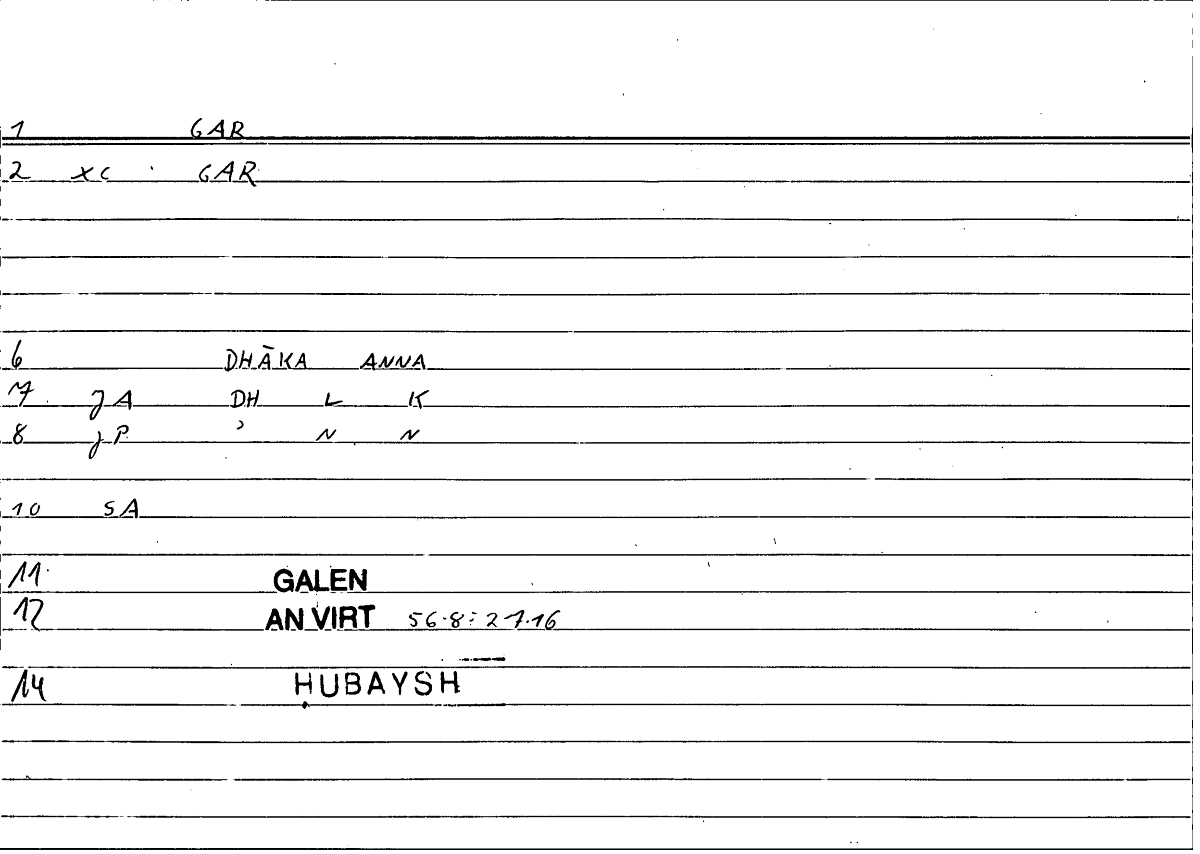 1 GAR
2 XC GAR
6 DHĀKA ANNA
7 JA DH L K
8 JP ʾ N N
10 SA
11 GALEN
12 AN VIRT 56.8:27.16
14 ḤUBAYSH